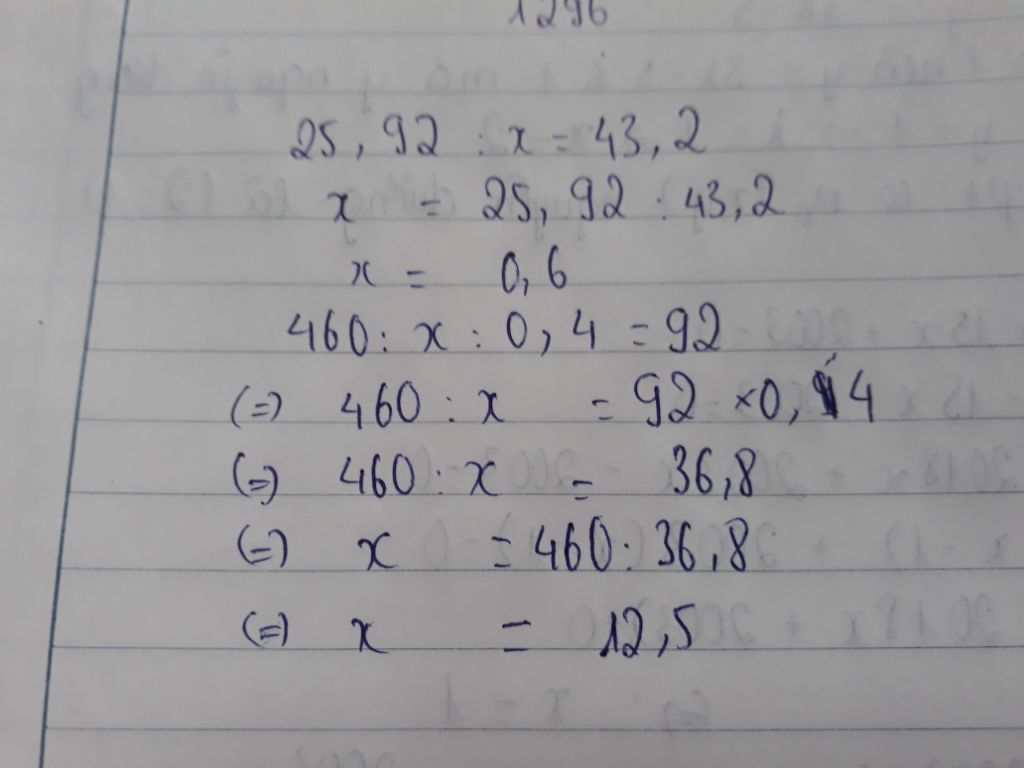 1296
25,92 : x = 43,2
x = 25,92 : 43,2
x = 0,6
460 : x : 0,4 = 92
(=) 460 : x = 92 × 0,4
(=) 460 : x = 36,8
(=) x = 460 : 36,8
(=) x = 12,5